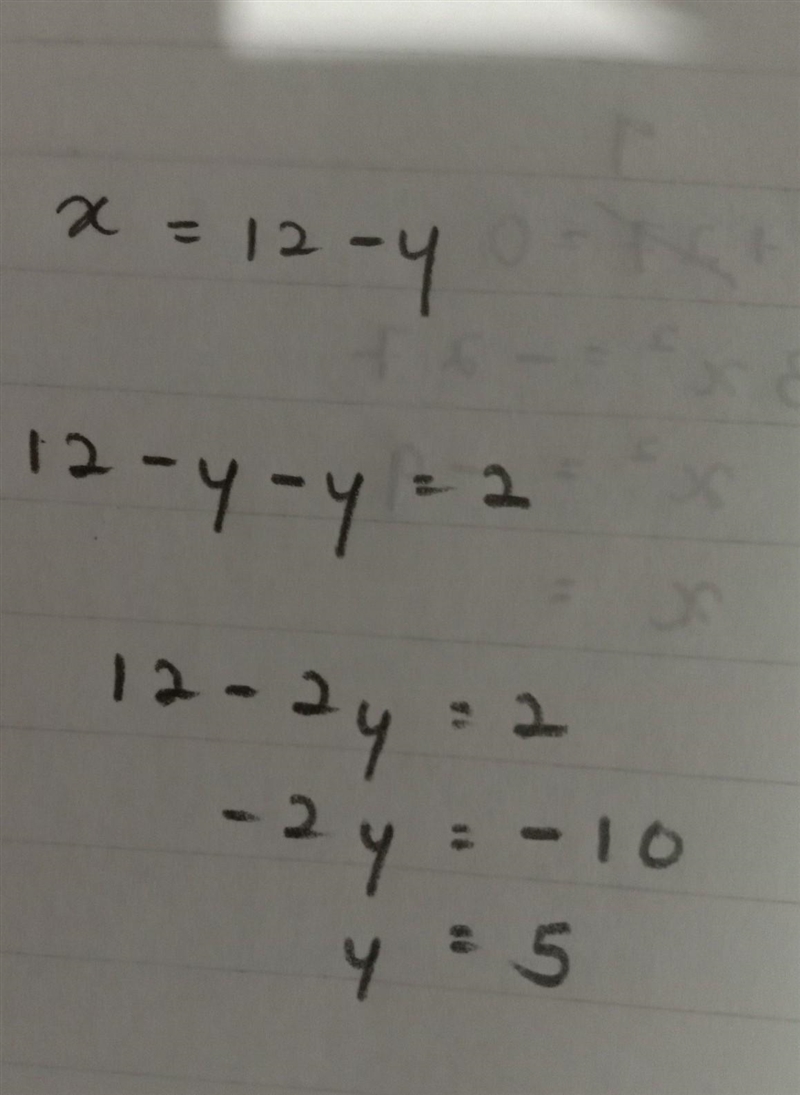 x = 12 - y
12 - y - y = 2
12 - 2y = 2
-2y = -10
y = 5